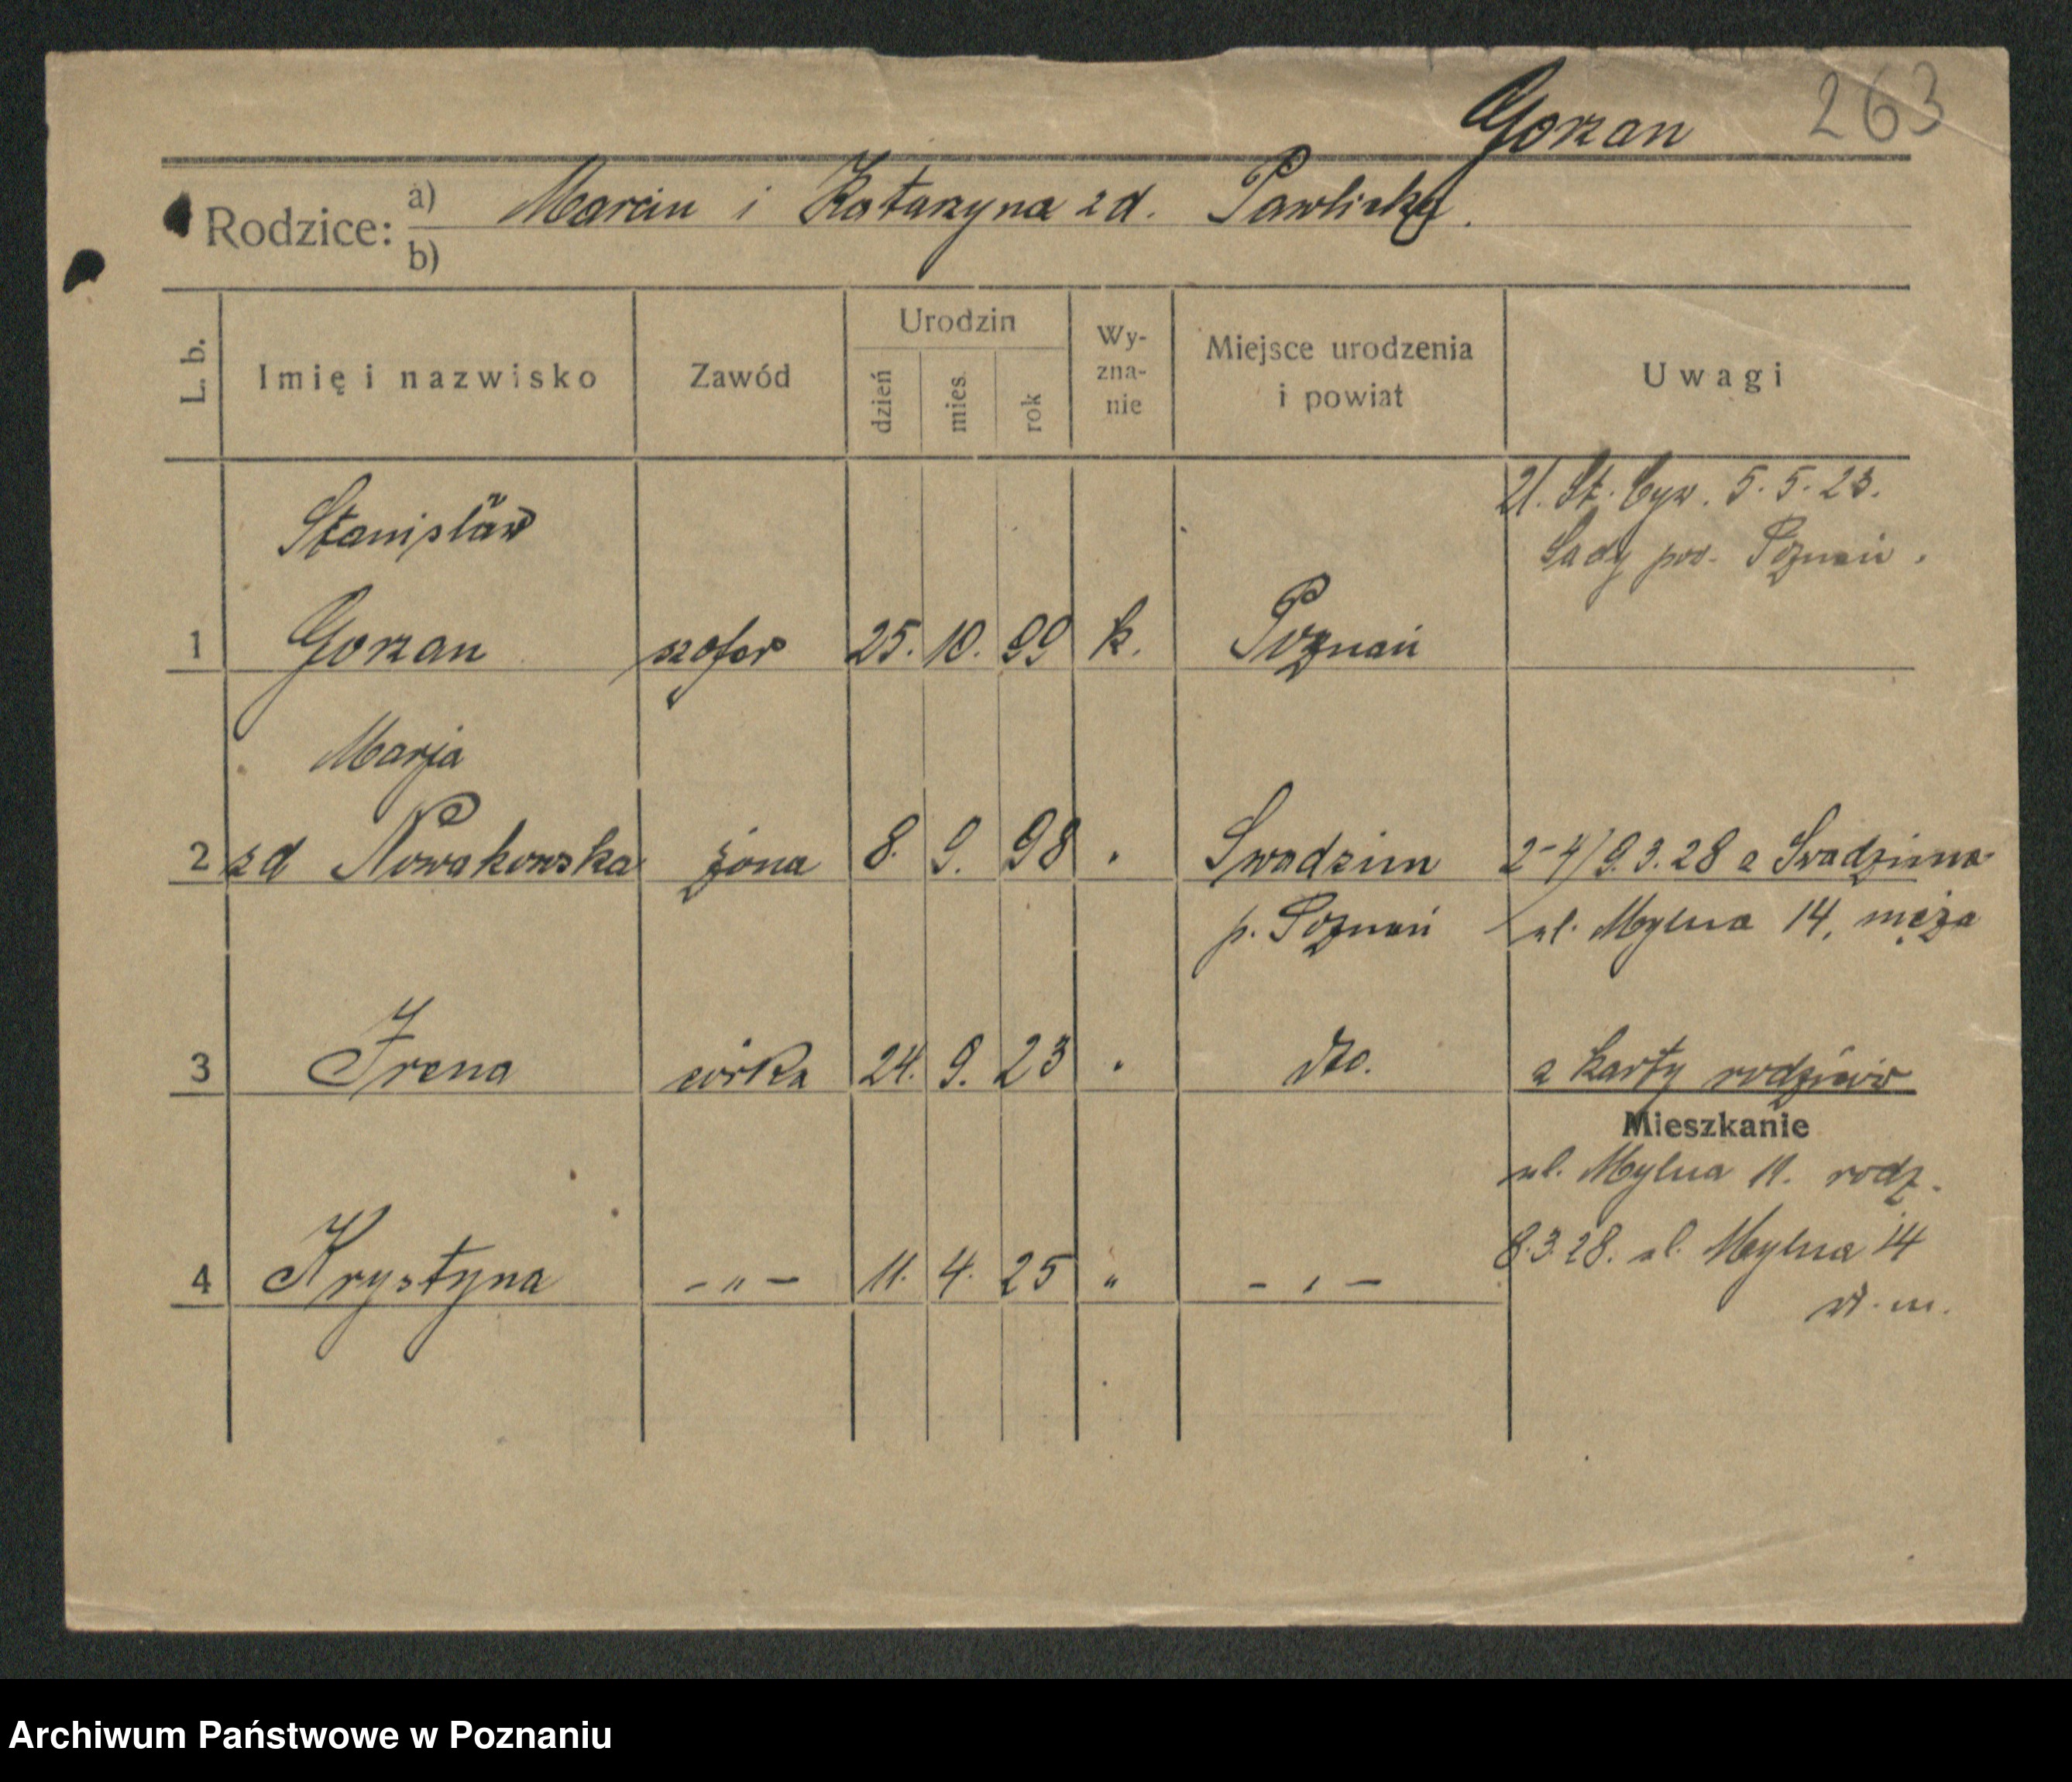 Gorzan 263
Rodzice: a) Marcin i Katarzyna zd. Pawlicka.
b)
L. b. Imię i nazwisko Zawód Urodzin dzień mies. rok Wy-zna-nie Miejsce urodzenia i powiat Uwagi
St. Cyw. 5.5.23.
Stanisław
Sady pow. Poznań.
1 Gorzan szofer 25. 10. 99 k. Poznań
Marja
2 zd Nowakowska żona 8. 9. 98 " Swadzim 2-4/9.3.28 z Swadzima
p. Poznań ul. Mylna 14, męża
3 Irena córka 24. 9. 23 " dto. z karty rodziców
Mieszkanie
ul. Mylna 11. rodz.
8.3.28. ul. Mylna 14
4 Krystyna -"- 11. 4. 25 " -"-
w. m.
Archiwum Państwowe w Poznaniu